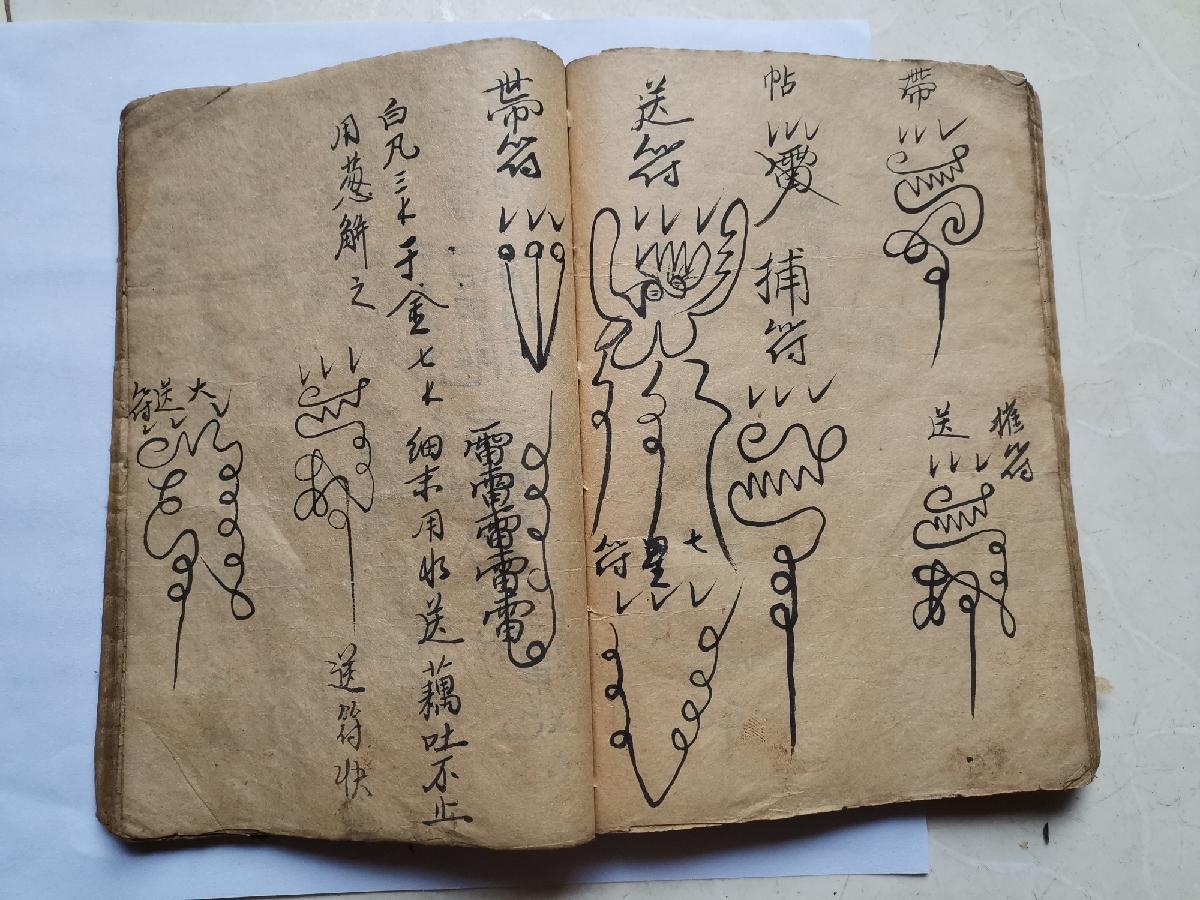 帶
推符
送
帖
捕符
送符
七星符
帯符
雷雷雷雷雷
白凡三
金七
细末用水送藕吐不止
用葱解之
送符快
大送符